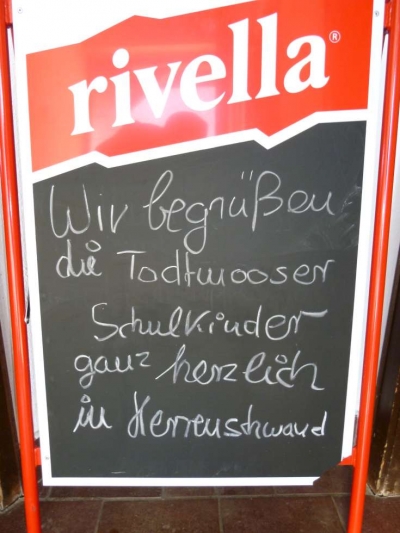 rivella®
Wir begrüßen
die Todtmooser
Schulkinder
ganz herzlich
in Herrenschwand